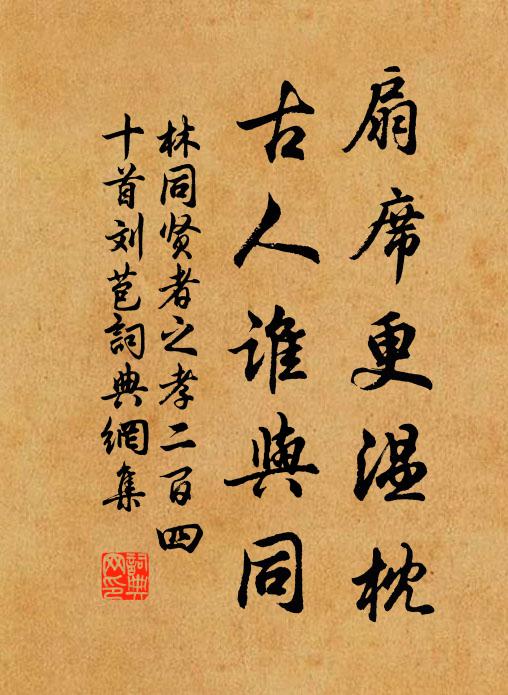 扇席更温枕
古人谁與同
林同贤者之孝二百四
十首刘苞詞典網集
詞典
网印